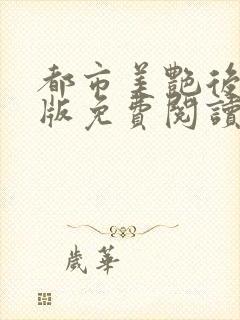 都市美艷後
版免費閱讀
歲華